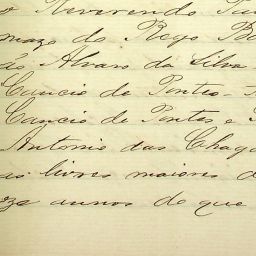 o Reverendo
mazo do Rego Ba
ão Alvaro da Silva
Cancio de Pontes
Cancio de Pontes e
Antonio das Chaga
as livres maiores d
ze annos do que